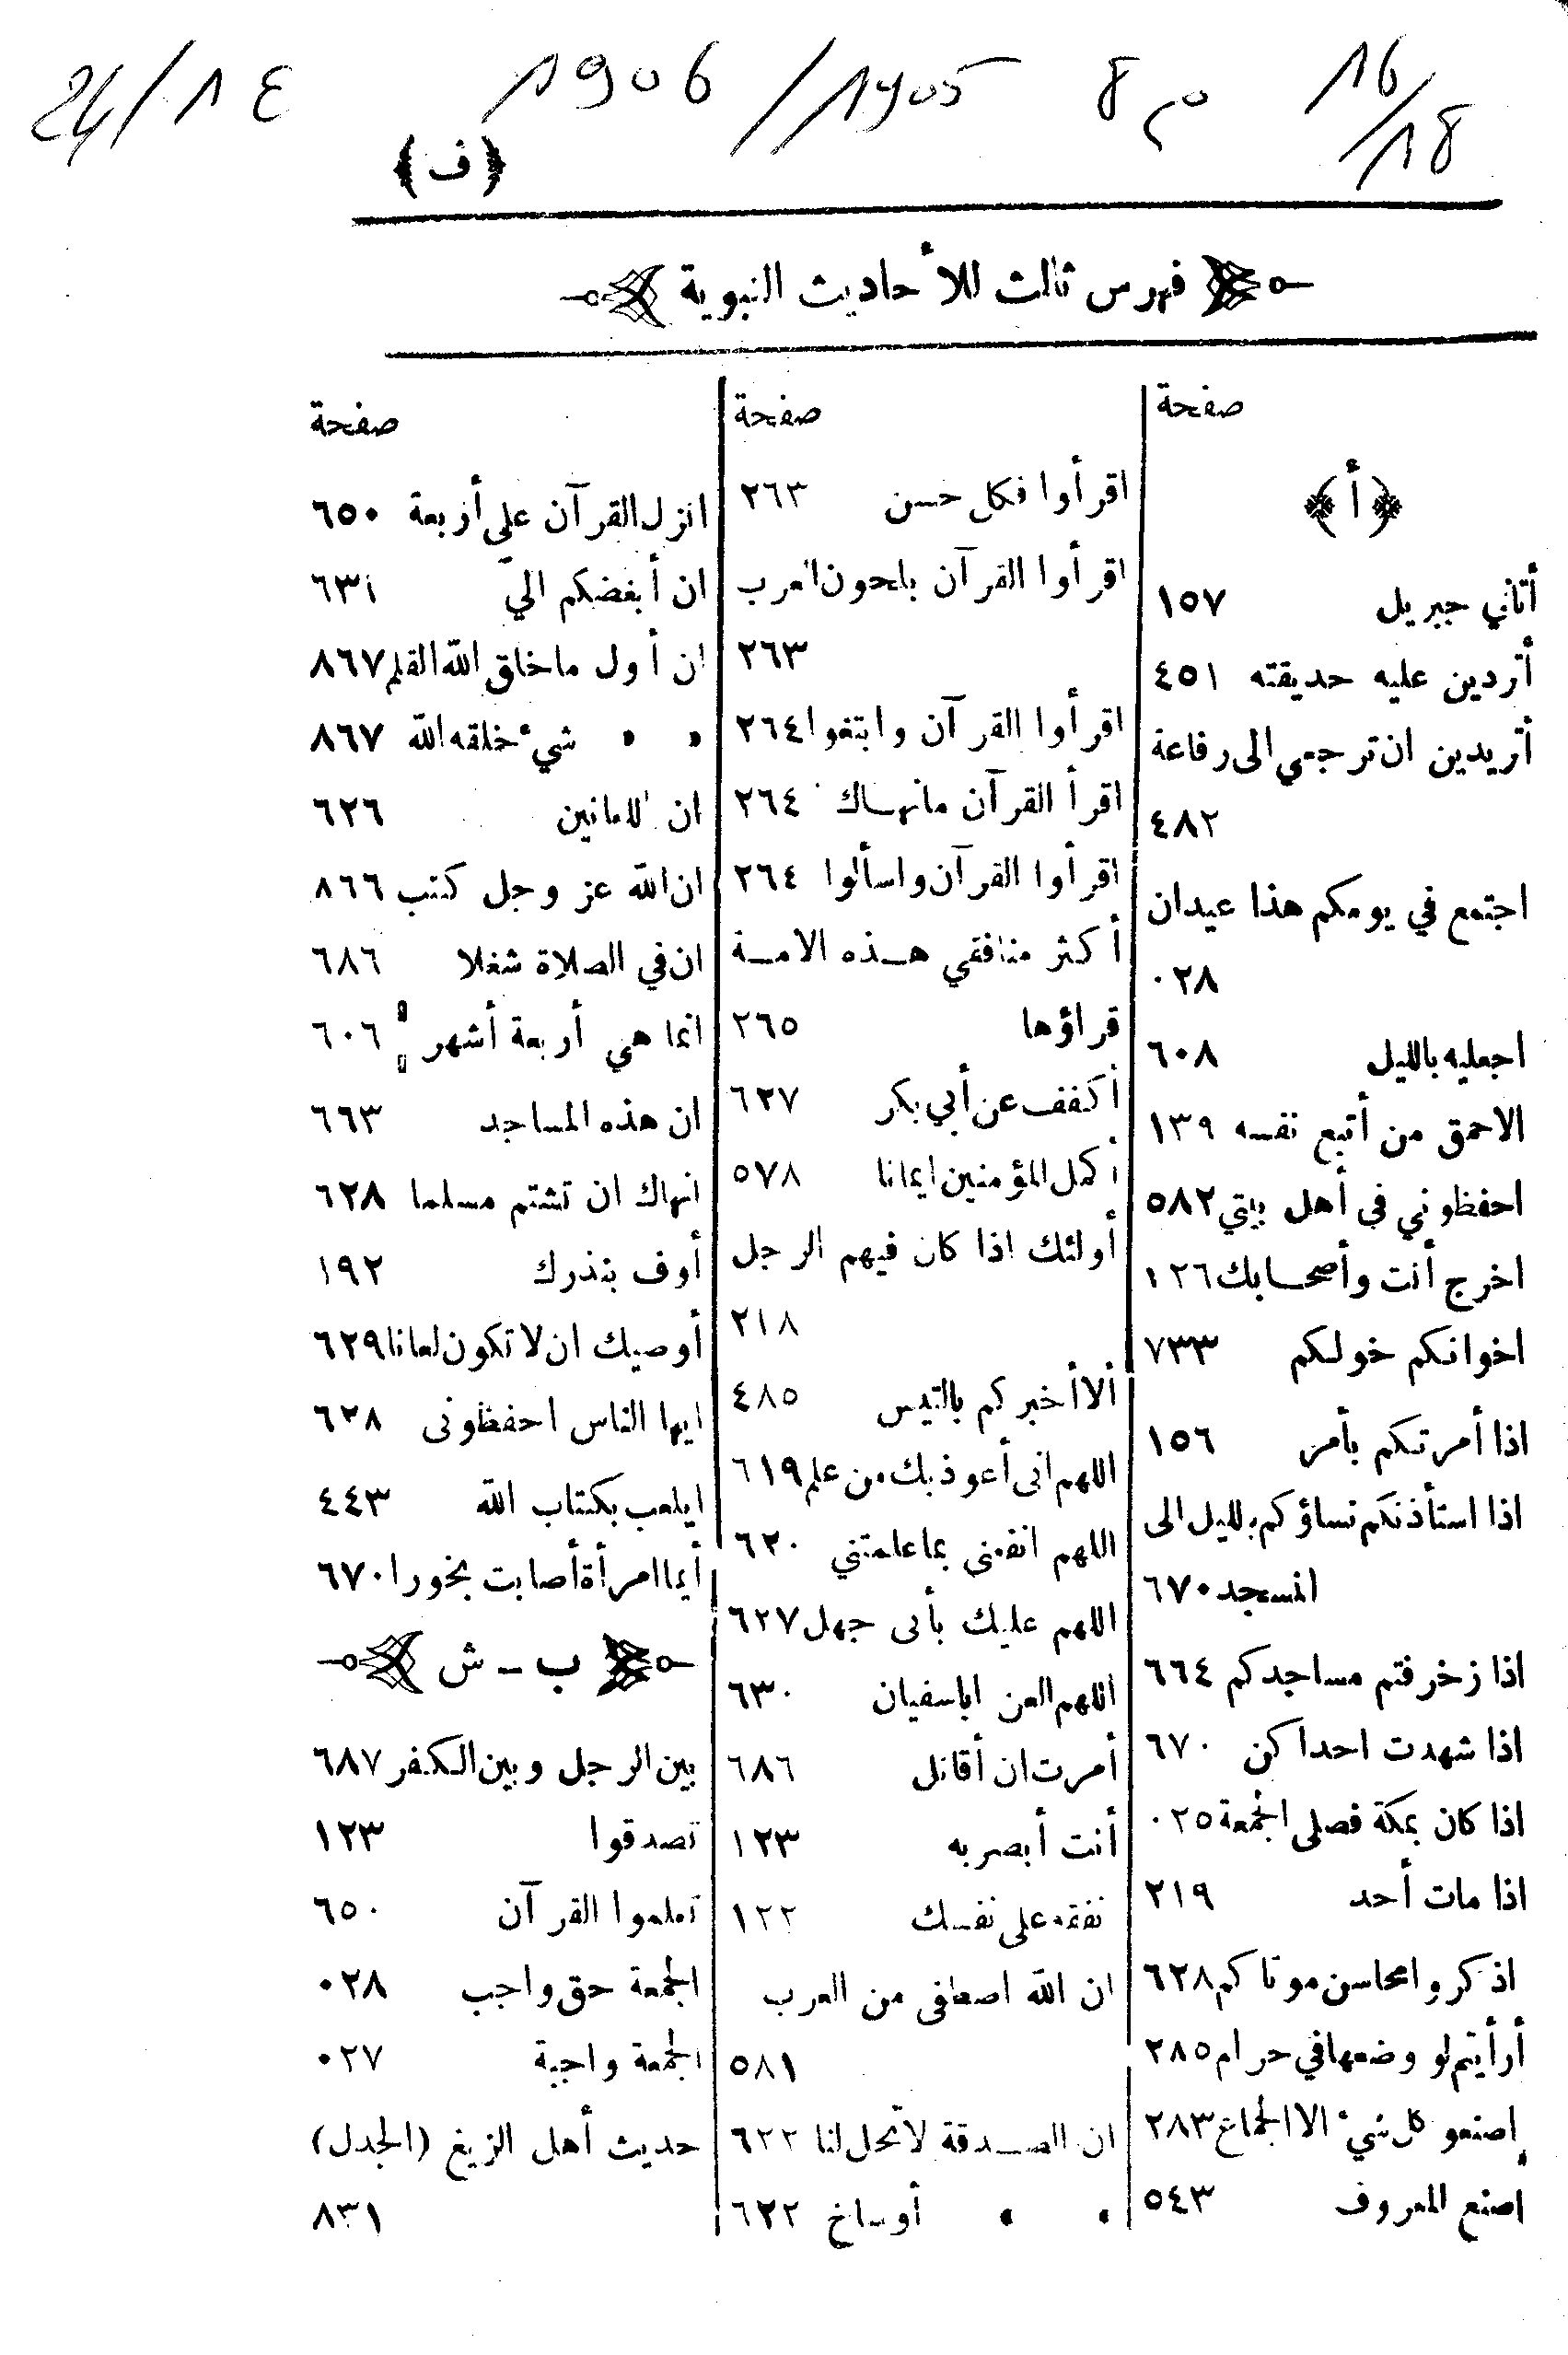 16/18 م 8 1905/1906 24/1٤
﴿ ف ﴾
فهرس ثالث للأحاديث النبوية
صفحة
﴿ أ ﴾
أتاني جبريل ١٥٧
أتردين عليه حديقته ٤٥١
أتريدين ان ترجعي الى رفاعة
٤٨٢
اجتمع في يومكم هذا عيدان
٠٢٨
اجعليه بالليل ٦٠٨
الاحمق من أتبع نفسه ١٣٩
احفظوني في أهل بيتي ٥٨٢
اخرج أنت وأصحابك ١٢٦
اخوانكم خولكم ٧٣٣
اذا أمرتكم بأمر ١٥٦
اذا استأذنكم نساؤكم بالليل الى
المسجد ٦٧٠
اذا زخرفتم مساجدكم ٦٦٤
اذا شهدت احداكن ٦٧٠
اذا كان بمكة فصلى الجمعة ٠٢٥
اذا مات أحد ٢١٩
اذكروا محاسن موتاكم ٦٢٨
أرأيتم لو وضعها في حرام ٢٨٥
إصنعو كل شيء الا الجماع ٢٨٣
إصنع المعروف ٥٤٣
صفحة
اقرأوا فكل حسن ٢٦٣
اقرأوا القرآن بلحون العرب
٢٦٣
اقرأوا القرآن وابتغوا ٢٦٤
اقرأ القرآن مانهاك ٢٦٤
اقرأوا القرآن واسألوا ٢٦٤
أكثر منافقي هذه الامة
قراؤها ٢٦٥
أكفف عن أبي بكر ٦٢٧
أكمل المؤمنين ايمانا ٥٧٨
أولئك اذا كان فيهم الرجل
٢١٨
ألا أخبركم بالتيس ٤٨٥
اللهم انى أعوذ بك من علم ٦١٩
اللهم انفعنى بما علمتني ٦٢٠
اللهم عليك بأبى جهل ٦٢٧
اللهم العن اباسفيان ٦٣٠
أمرت ان أقاتل ٦٨٦
أنت أبصر به ١٢٣
نفقه على نفسك ١٢٢
ان الله اصطفى من العرب
٥٨١
ان الصدقة لا تحل لنا ٦٢٢
» » أوساخ ٦٢٢
صفحة
انزل القرآن على أربعة ٦٥٠
ان أبغضكم اليّ ٦٣١
ان أول ما خلق الله القلم ٨٦٧
» » شيء خلقه الله ٨٦٧
ان اللعانين ٦٢٦
ان الله عز وجل كتب ٨٦٦
ان في الصلاة شغلا ٦٨٦
انما هي أربعة أشهر ٦٠٦
ان هذه المساجد ٦٦٣
انهاك ان تشتم مسلما ٦٢٨
أوف بنذرك ١٩٢
أوصيك ان لا تكون لعانا ٦٢٩
ايها الناس احفظونى ٦٢٨
ايلعب بكتاب الله ٤٤٣
أيما امرأة أصابت بخورا ٦٧٠
ب - ش
بين الرجل وبين الكفر ٦٨٧
تصدقوا ١٢٣
تعلموا القرآن ٦٥٠
الجمعة حق واجب ٠٢٨
الجمعة واجبة ٠٢٧
حديث أهل الزيغ (الجدل)
٨٣١